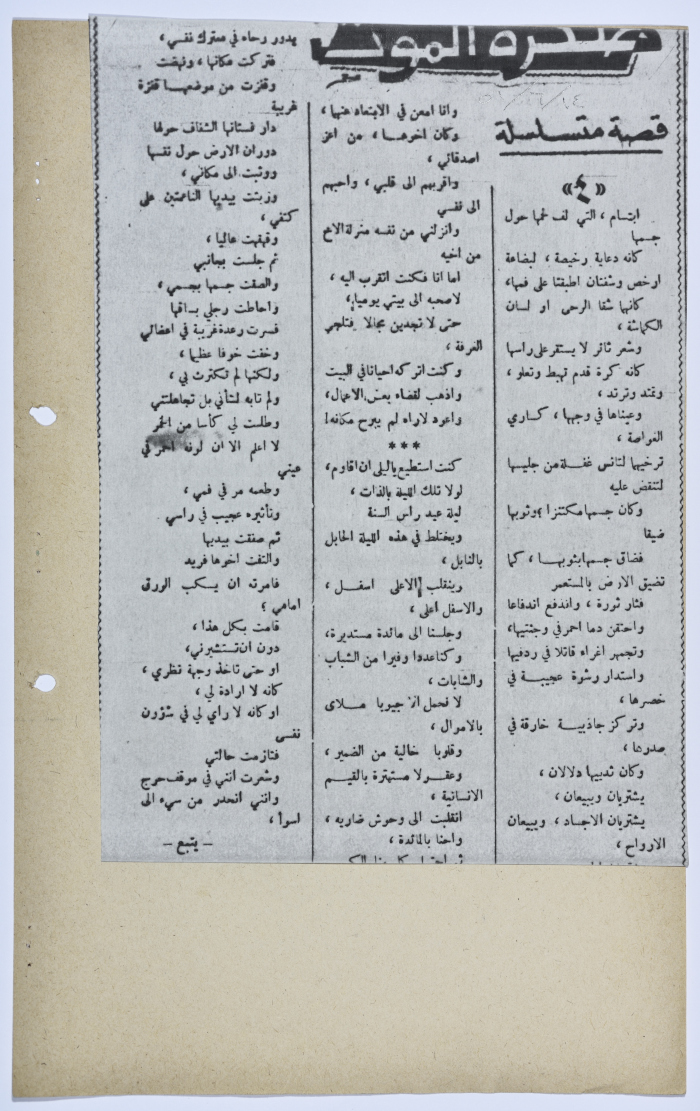 صخرة الموت
قصة متسلسلة
ابتسام ، التي لف لحمها حول
جسمها
كانه دعاية رخيصة ، لبضاعة
ارخص وشفتان اطبقتا على فمها،
كانهما شقا الرحى او لسان
الكماشة ،
وشعر ثائر لا يستقر على راسها
كانه كرة قدم تهبط وتعلو ،
وتمتد وترتد ،
وعيناها في وجهها ، كساري
الغواصة ،
ترخيهما لتانس غفلة من جليسها
لتنقض عليه
وكان جسمها مكتنزا ؛ وثوبها
ضيقا
فضاق جسمها بثوبها ، كما
تضيق الارض بالمستعمر
فثار ثورة ، واندفع اندفاعا
واحتقن دما احمر في وجنتيها،
وتجمهر اغراء قاتلا في ردفيها
واستدار رشوة عجيبة في
خصرها ،
وتركز جاذبية خارقة في
صدرها ،
وكان ثدييها دلالان ،
يشتريان ويبيعان ،
يشتريان الاجساد ، ويبيعان
الارواح ،
وانا امعن في الابتعاد عنها ،
وكان اخوها ، من اعز
اصدقائي ،
واقربهم الى قلبي ، واحبهم
الى نفسي
وانزلني من نفسه منزلة الاخ
من اخيه
اما انا فكنت اتقرب اليه ،
لاصحبه الى بيتي يوميا،
حتى لا تجدين مجالا لمفتاحي
الغرفة ،
وكنت اتركه احيانا في البيت
واذهب لقضاء بعض الاعمال،
واعود لاراه لم يبرح مكانه!
***
كنت استطيع ياليلى ان اقاوم،
لولا تلك الليلة بالذات ،
ليلة عيد رأس السنة
ويختلط في هذه الليلة الحابل
بالنابل ،
وينقلب الاعلى اسفل ،
والاسفل اعلى ،
وجلسنا الى مائدة مستديرة،
وكنا عددا وفيرا من الشباب
والشابات ،
لا نحمل الا جيوبا ملأى
بالاموال ،
وقلوبا خالية من الضمير ،
وعقولا مستهترة بالقيم
الانسانية ،
انقلبت الى وحوش ضاريه ،
واحنا بالمائدة ،
يدور رحاه في معترك نفسي،
فتركت مكانها ، ونهضت
وقفزت من موضعها قفزة
غريبة
دار فستانها الشفاف حولها
دوران الارض حول نفسها
ووثبت الى مكاني ،
وربتت بيديها الناعمتين على
كتفي ،
وقهقهت عاليا ،
ثم جلست بجانبي
والصقت جسمها بجسمي ،
واحاطت رجلي بساقها
فسرت رعدة غريبة في اعضائي
وخفت خوفا عظيما ،
ولكنها لم تكترث بي ،
ولم تابه لشأني بل تجاهلتني
وطلبت لي كأسا من الخمر
لا اعلم الا ان لونه احمر في
عيني
وطعمه مر في فمي ،
وتأثيره عجيب في راسي
ثم صفقت بيديها
والتفت اخوها فريد
فامرته ان يسكب الورق
امامي ؟
قامت بكل هذا ،
دون ان تستشيرني،
او حتى تاخذ وجهة نظري ،
كانه لا ارادة لي ،
او كانه لا راي لي في شؤون
نفسى
فتازمت حالتي
وشعرت انني في موقف حرج
وانني انحدر من سيء الى
اسوأ ،
– يتبع –